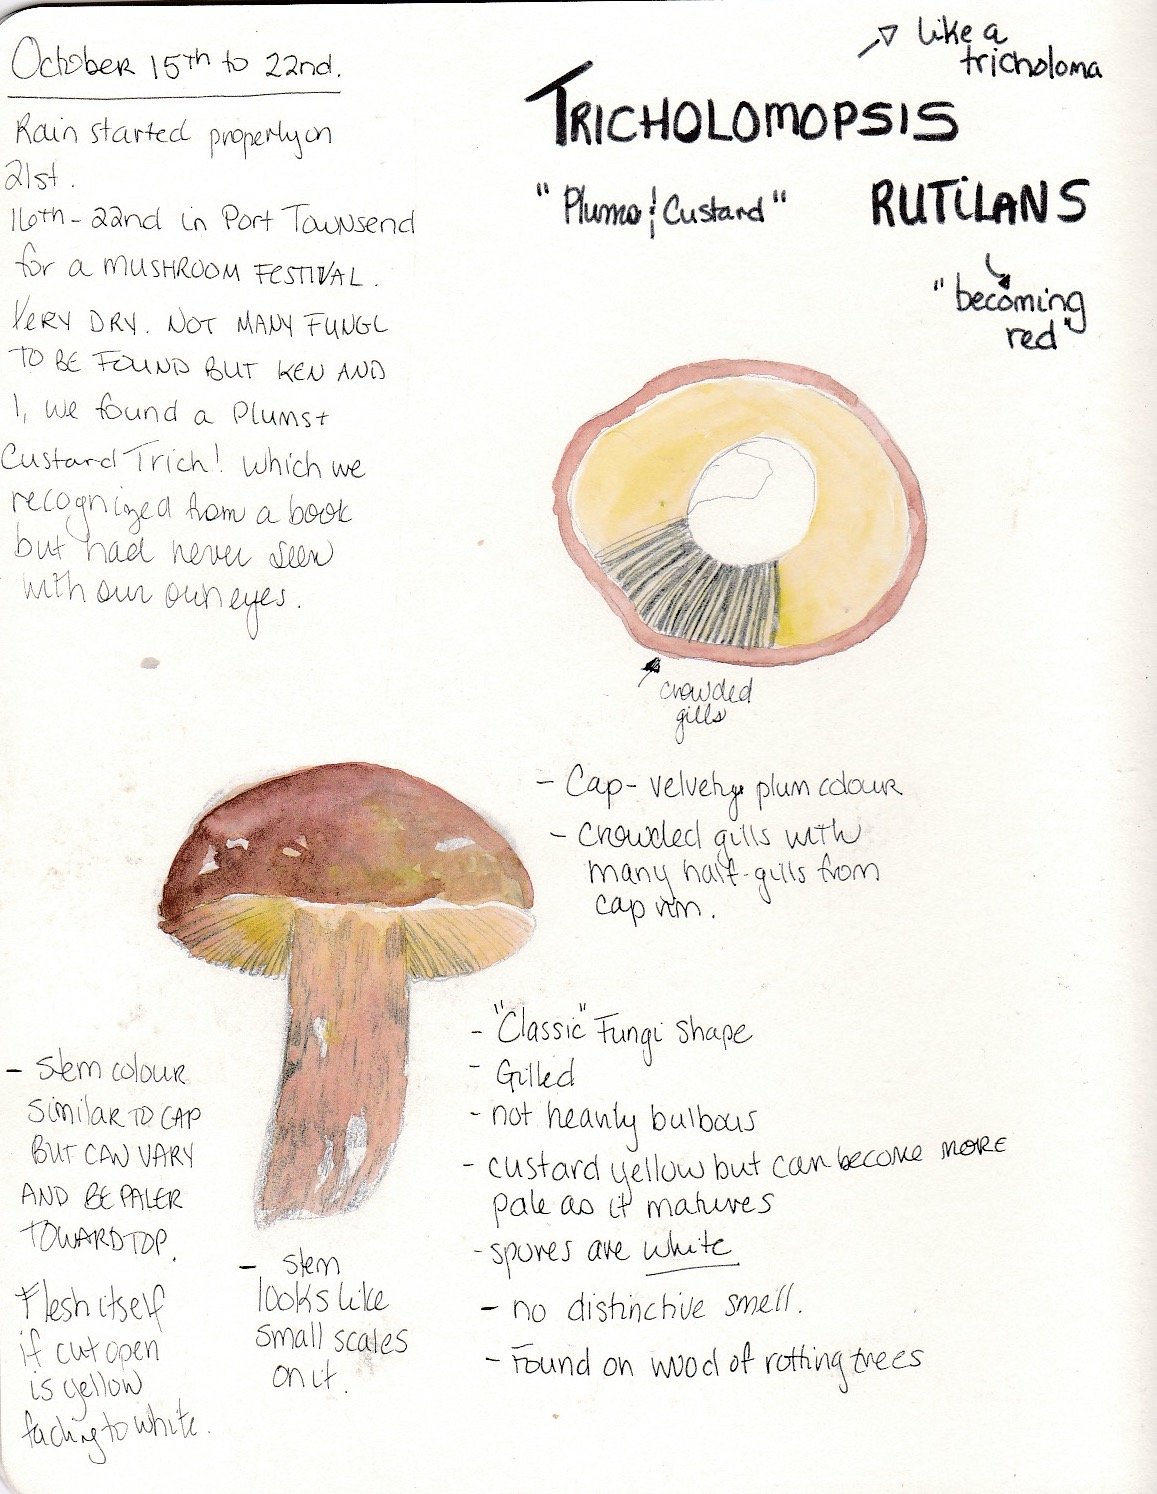 October 15th to 22nd.
Rain started properly on
21st.
16th - 22nd in Port Townsend
for a MUSHROOM FESTIVAL.
VERY DRY. NOT MANY FUNGI
TO BE FOUND BUT KEN AND
I, we found a Plums +
Custard Trich! which we
recognized from a book
but had never seen
with our own eyes.
like a
tricholoma
TRICHOLOMOPSIS
RUTILANS
"Plums & Custard"
"becoming
red"
crowded
gills
- Cap - velvety plum colour
- Crowded gills with
many half-gills from
cap rim.
- "Classic" Fungi shape
- Gilled
- not heavily bulbous
- custard yellow but can become more
pale as it matures
- spores are white
- no distinctive smell.
- Found on wood of rotting trees
- stem colour
similar TO CAP
BUT CAN VARY
AND BE PALER
TOWARD TOP.
Flesh itself
if cut open
is yellow
fading to white.
- stem
looks like
small scales
on it.